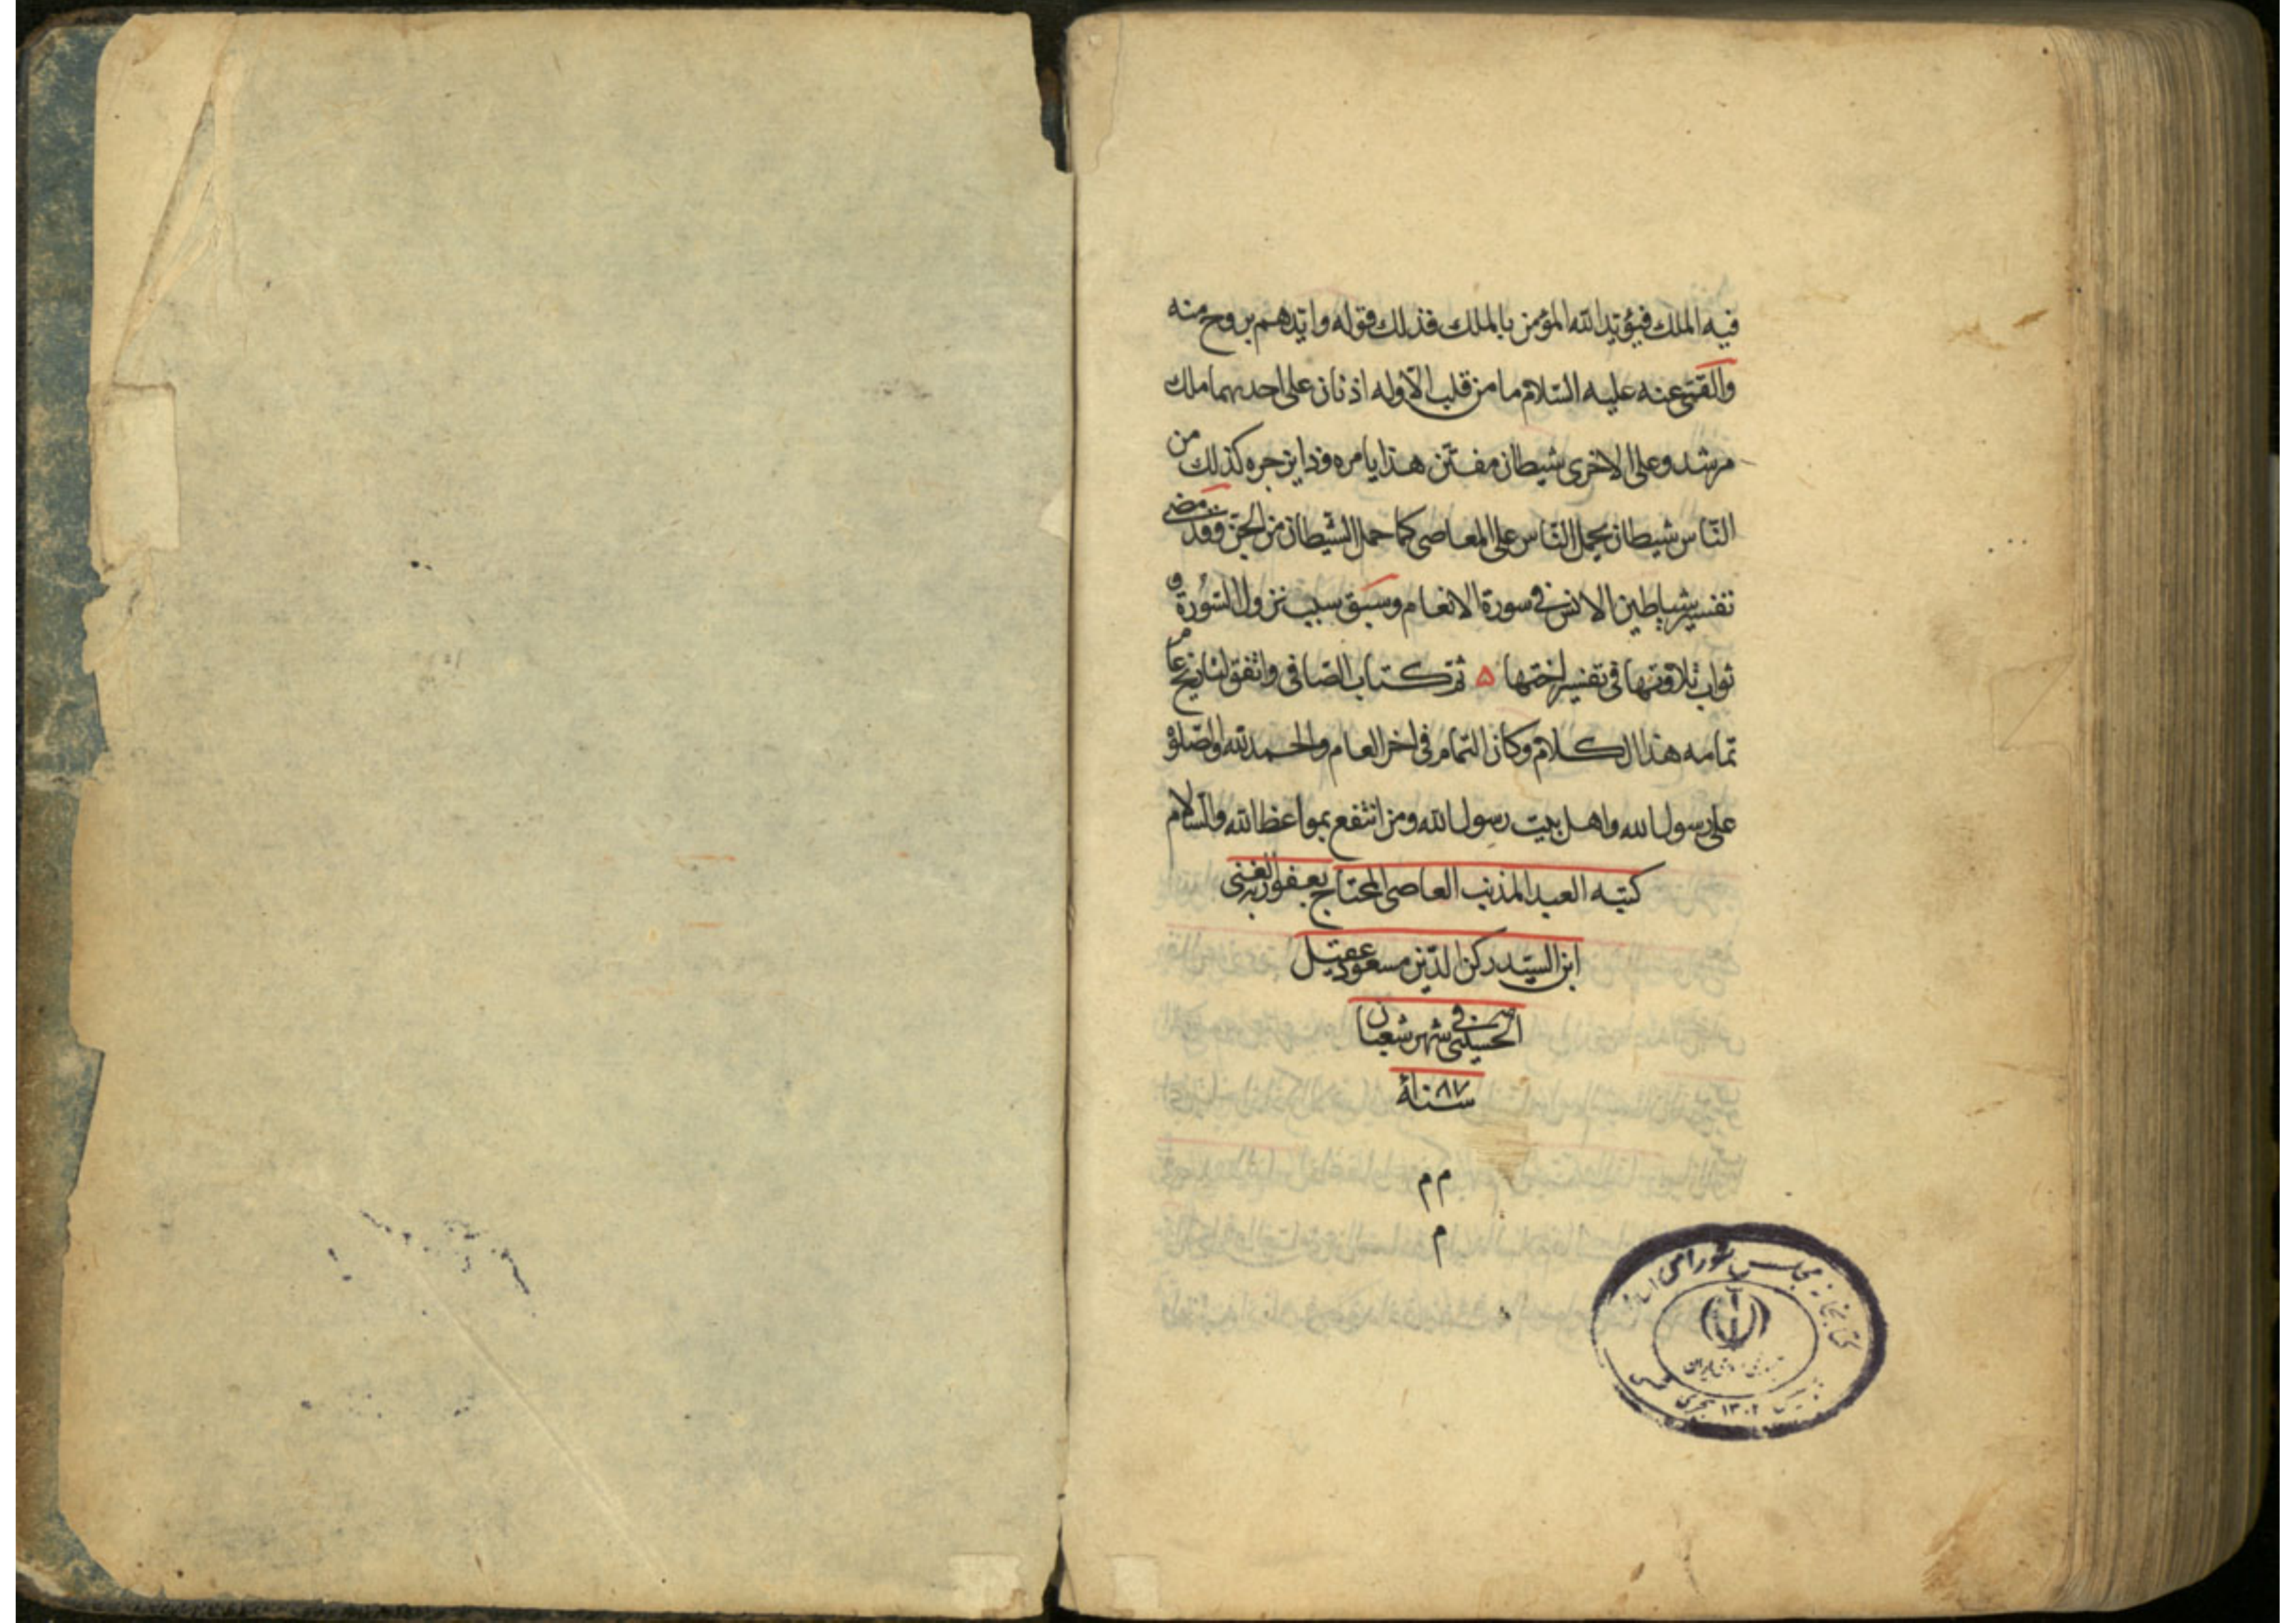 فيه الملك فيؤيد الله المؤمن بالملك فذلك قوله وايدهم بروح منه
والقمّي عنه عليه السّلام ما من قلب الّا وله اذنان على احديهما ملك
مرشد وعلى الاخرى شيطان مفتّن هذا يامره وذا يزجره كذلك من
النّاس شيطان يحمل النّاس على المعاصى كما حمل الشّيطان من الجنّ وقد مضى
تفسير شياطين الانس فى سورة الانعام وسبق سبب نزول السّورة و
ثواب تلاوتها فى تفسير اختها ۵ تمّ كتاب الصّافى واتّفق لتاريخ عام
تمامه هذا الكلام وكان التمام فى اخر العام والحمد لله والصّلوة
على رسول الله واهل بيت رسول الله ومن انتفع بمواعظ الله والسّلام
كتبه العبد المذنب العاصى المحتاج بعفو ربه الغنى
ابن السيّد ركن الدّين مسعود عقيل
الحسينى فى شهر شعبان
سنة ١٠٨٧
م م
م
كتابخانه مجلس شورای اسلامی
تأسيس ١٣٠٢ هجری شمسی